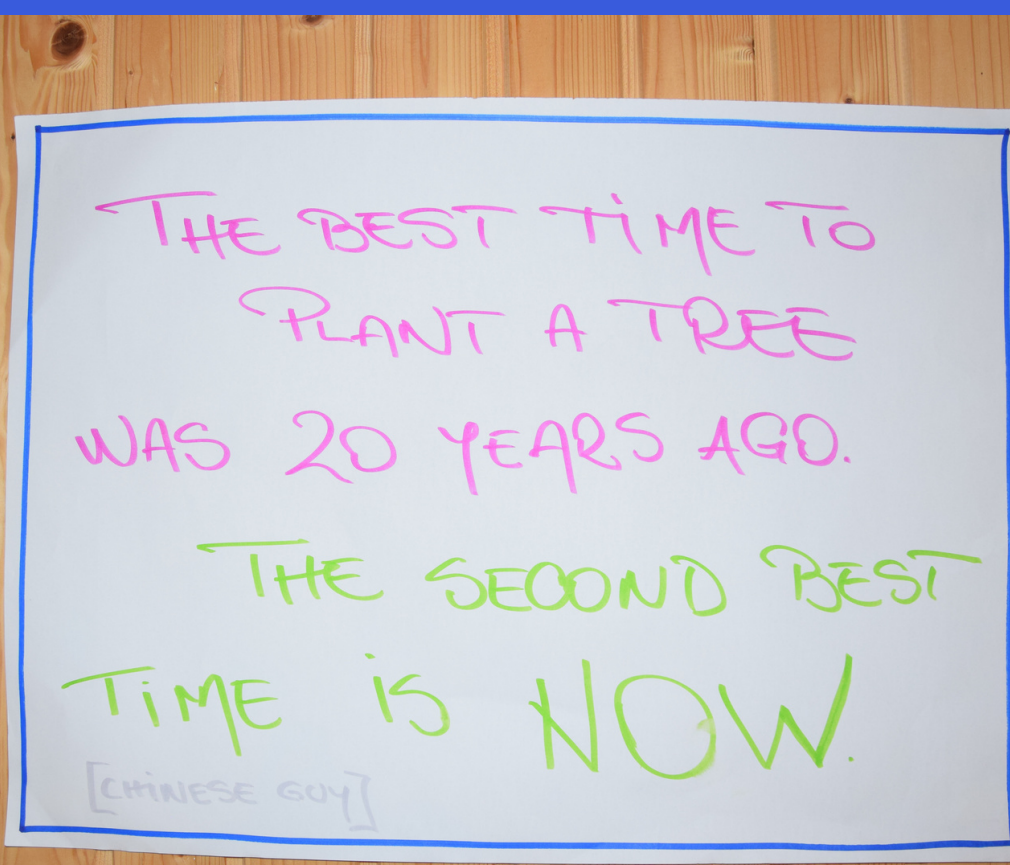 THE BEST TiME TO
PLANT A TREE
WAS 20 YEARS AGO.
THE SECOND BEST
TiME iS NOW.
[CHiNESE GUY]